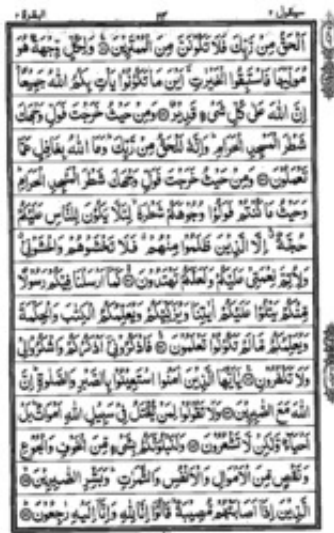 سیقول ۲ ۲۳ البقرة ۲
اَلْحَقُّ مِنْ رَّبِّكَ فَلَا تَكُوْنَنَّ مِنَ الْمُمْتَرِيْنَ۝ وَلِكُلٍّ وِّجْهَةٌ هُوَ
مُوَلِّيْهَا فَاسْتَبِقُوا الْخَيْرٰتِ ۚ اَيْنَ مَا تَكُوْنُوْا يَاْتِ بِكُمُ اللّٰهُ جَمِيْعًا ۚ
اِنَّ اللّٰهَ عَلٰى كُلِّ شَيْءٍ قَدِيْرٌ۝ وَمِنْ حَيْثُ خَرَجْتَ فَوَلِّ وَجْهَكَ
شَطْرَ الْمَسْجِدِ الْحَرَامِ ۭ وَاِنَّهٗ لَلْحَقُّ مِنْ رَّبِّكَ ۭ وَمَا اللّٰهُ بِغَافِلٍ عَمَّا
تَعْمَلُوْنَ۝ وَمِنْ حَيْثُ خَرَجْتَ فَوَلِّ وَجْهَكَ شَطْرَ الْمَسْجِدِ الْحَرَامِ ۭ
وَحَيْثُ مَا كُنْتُمْ فَوَلُّوْا وُجُوْهَكُمْ شَطْرَهٗ ۙ لِئَلَّا يَكُوْنَ لِلنَّاسِ عَلَيْكُمْ
حُجَّةٌ ۙ اِلَّا الَّذِيْنَ ظَلَمُوْا مِنْهُمْ ۤ فَلَا تَخْشَوْهُمْ وَاخْشَوْنِيْ ۤ
وَلِاُتِمَّ نِعْمَتِيْ عَلَيْكُمْ وَلَعَلَّكُمْ تَهْتَدُوْنَ۝ كَمَآ اَرْسَلْنَا فِيْكُمْ رَسُوْلًا
مِّنْكُمْ يَتْلُوْا عَلَيْكُمْ اٰيٰتِنَا وَيُزَكِّيْكُمْ وَيُعَلِّمُكُمُ الْكِتٰبَ وَالْحِكْمَةَ
وَيُعَلِّمُكُمْ مَّا لَمْ تَكُوْنُوْا تَعْلَمُوْنَ۝ فَاذْكُرُوْنِيْٓ اَذْكُرْكُمْ وَاشْكُرُوْا لِيْ
وَلَا تَكْفُرُوْنِ۝ يٰٓاَيُّهَا الَّذِيْنَ اٰمَنُوا اسْتَعِيْنُوْا بِالصَّبْرِ وَالصَّلٰوةِ ۭ اِنَّ
اللّٰهَ مَعَ الصّٰبِرِيْنَ۝ وَلَا تَقُوْلُوْا لِمَنْ يُّقْتَلُ فِيْ سَبِيْلِ اللّٰهِ اَمْوَاتٌ ۭ بَلْ
اَحْيَآءٌ وَّلٰكِنْ لَّا تَشْعُرُوْنَ۝ وَلَنَبْلُوَنَّكُمْ بِشَيْءٍ مِّنَ الْخَوْفِ وَالْجُوْعِ
وَنَقْصٍ مِّنَ الْاَمْوَالِ وَالْاَنْفُسِ وَالثَّمَرٰتِ ۭ وَبَشِّرِ الصّٰبِرِيْنَ۝
الَّذِيْنَ اِذَآ اَصَابَتْهُمْ مُّصِيْبَةٌ ۙ قَالُوْٓا اِنَّا لِلّٰهِ وَاِنَّآ اِلَيْهِ رٰجِعُوْنَ۝